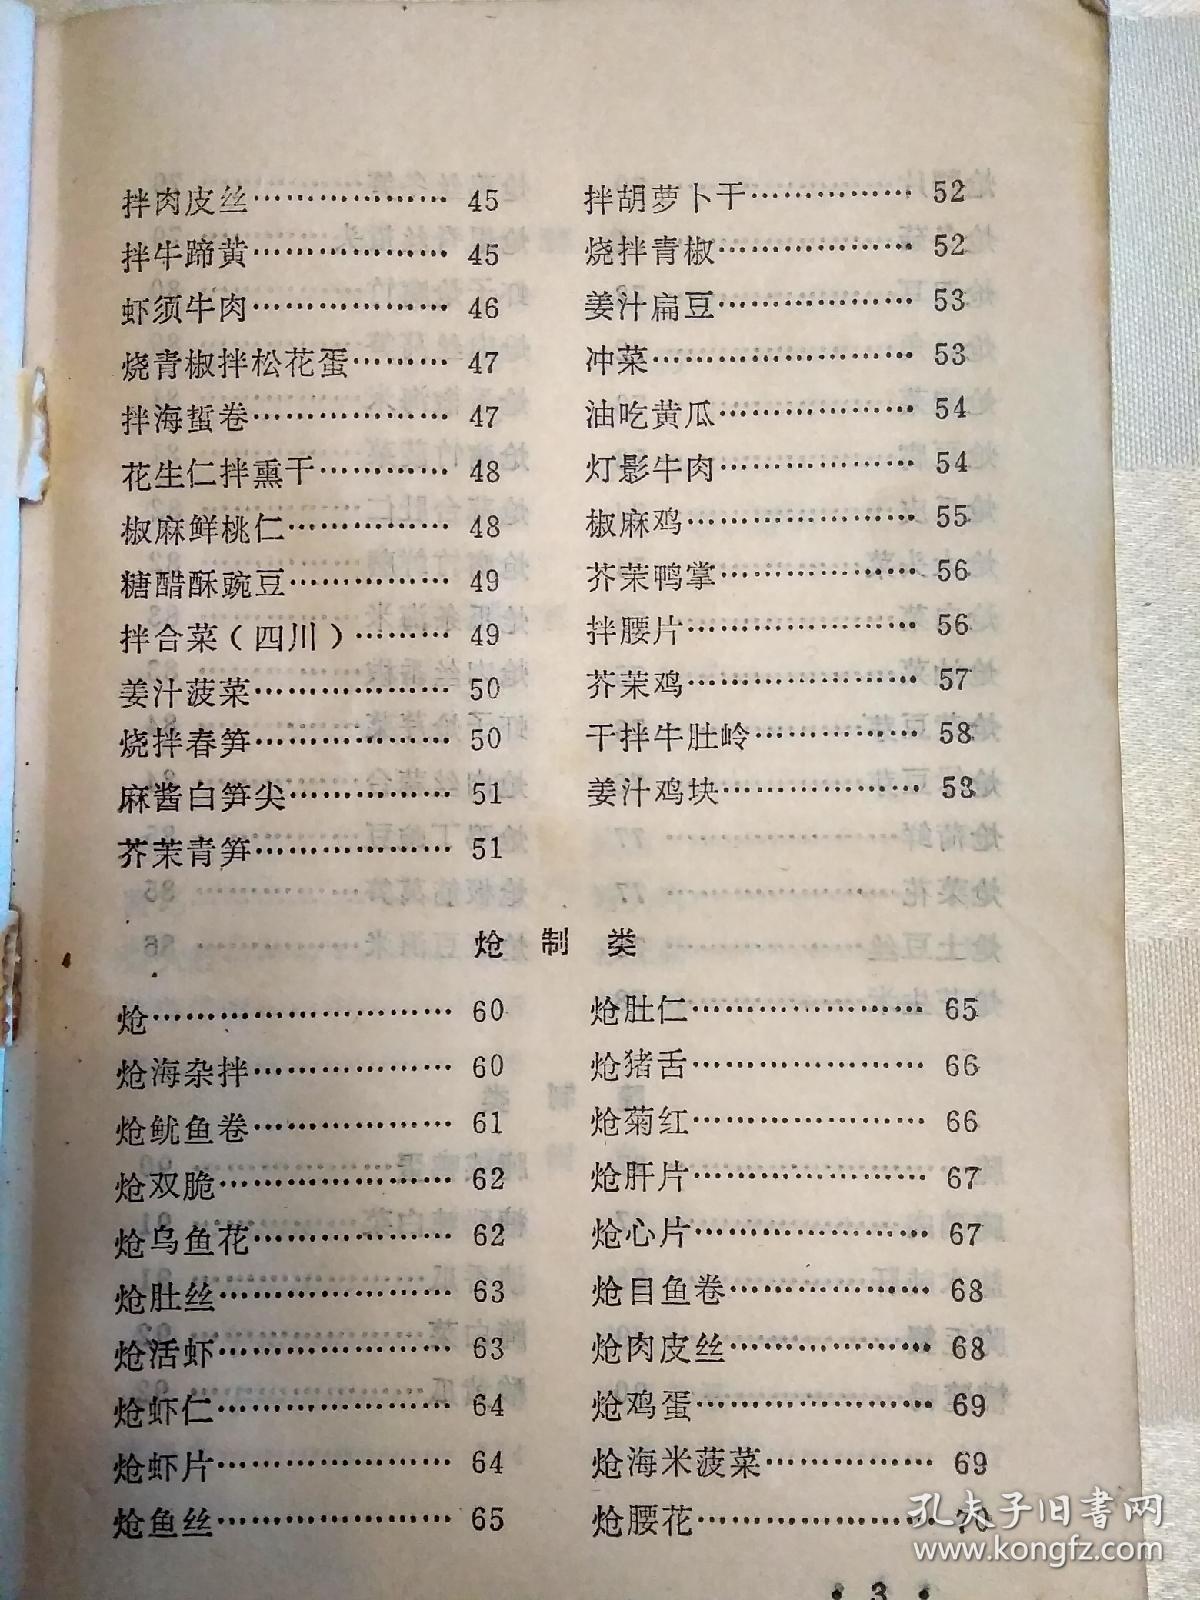 拌肉皮丝………………… 45
拌牛蹄黄………………… 45
虾须牛肉………………… 46
烧青椒拌松花蛋……… 47
拌海蜇卷………………… 47
花生仁拌熏干………… 48
椒麻鲜桃仁…………… 48
糖醋酥豌豆…………… 49
拌合菜（四川）……… 49
姜汁菠菜………………… 50
烧拌春笋………………… 50
麻酱白笋尖…………… 51
芥茉青笋………………… 51
拌胡萝卜干…………… 52
烧拌青椒………………… 52
姜汁扁豆………………… 53
冲菜……………………… 53
油吃黄瓜………………… 54
灯影牛肉………………… 54
椒麻鸡…………………… 55
芥茉鸭掌………………… 56
拌腰片…………………… 56
芥茉鸡…………………… 57
干拌牛肚岭…………… 58
姜汁鸡块………………… 58
炝 制 类
炝………………………… 60
炝海杂拌………………… 60
炝鱿鱼卷………………… 61
炝双脆…………………… 62
炝乌鱼花………………… 62
炝肚丝…………………… 63
炝活虾…………………… 63
炝虾仁…………………… 64
炝虾片…………………… 64
炝鱼丝…………………… 65
炝肚仁…………………… 65
炝猪舌…………………… 66
炝菊红…………………… 66
炝肝片…………………… 67
炝心片…………………… 67
炝目鱼卷………………… 68
炝肉皮丝………………… 68
炝鸡蛋…………………… 69
炝海米菠菜…………… 69
炝腰花…………………… 70
• 3 •
孔夫子旧书网
www.kongfz.com